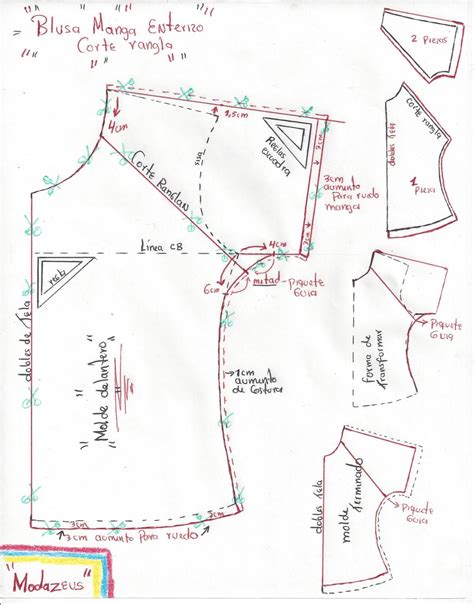 "Blusa Manga Enterizo
Corte rangla"
2 Piezas
4cm
1,5cm
Corte rangla
dobles Tela
1 Pieza
Corte Ranglan
Sisa
Reglas
escuadra
2cm
3cm
aumento
Para ruedo
manga
Línea CB
4cm
6cm
mitad-piquete
Guia
recto
dobles de Tela
"Molde delantero"
1cm
aumento
de costura
Piquete
Guia
forma de
Transformar
dobles Tela
molde
Terminado
Piquete
Guia
3cm
3cm
2cm
3cm aumento Para ruedo
"Modazeus"